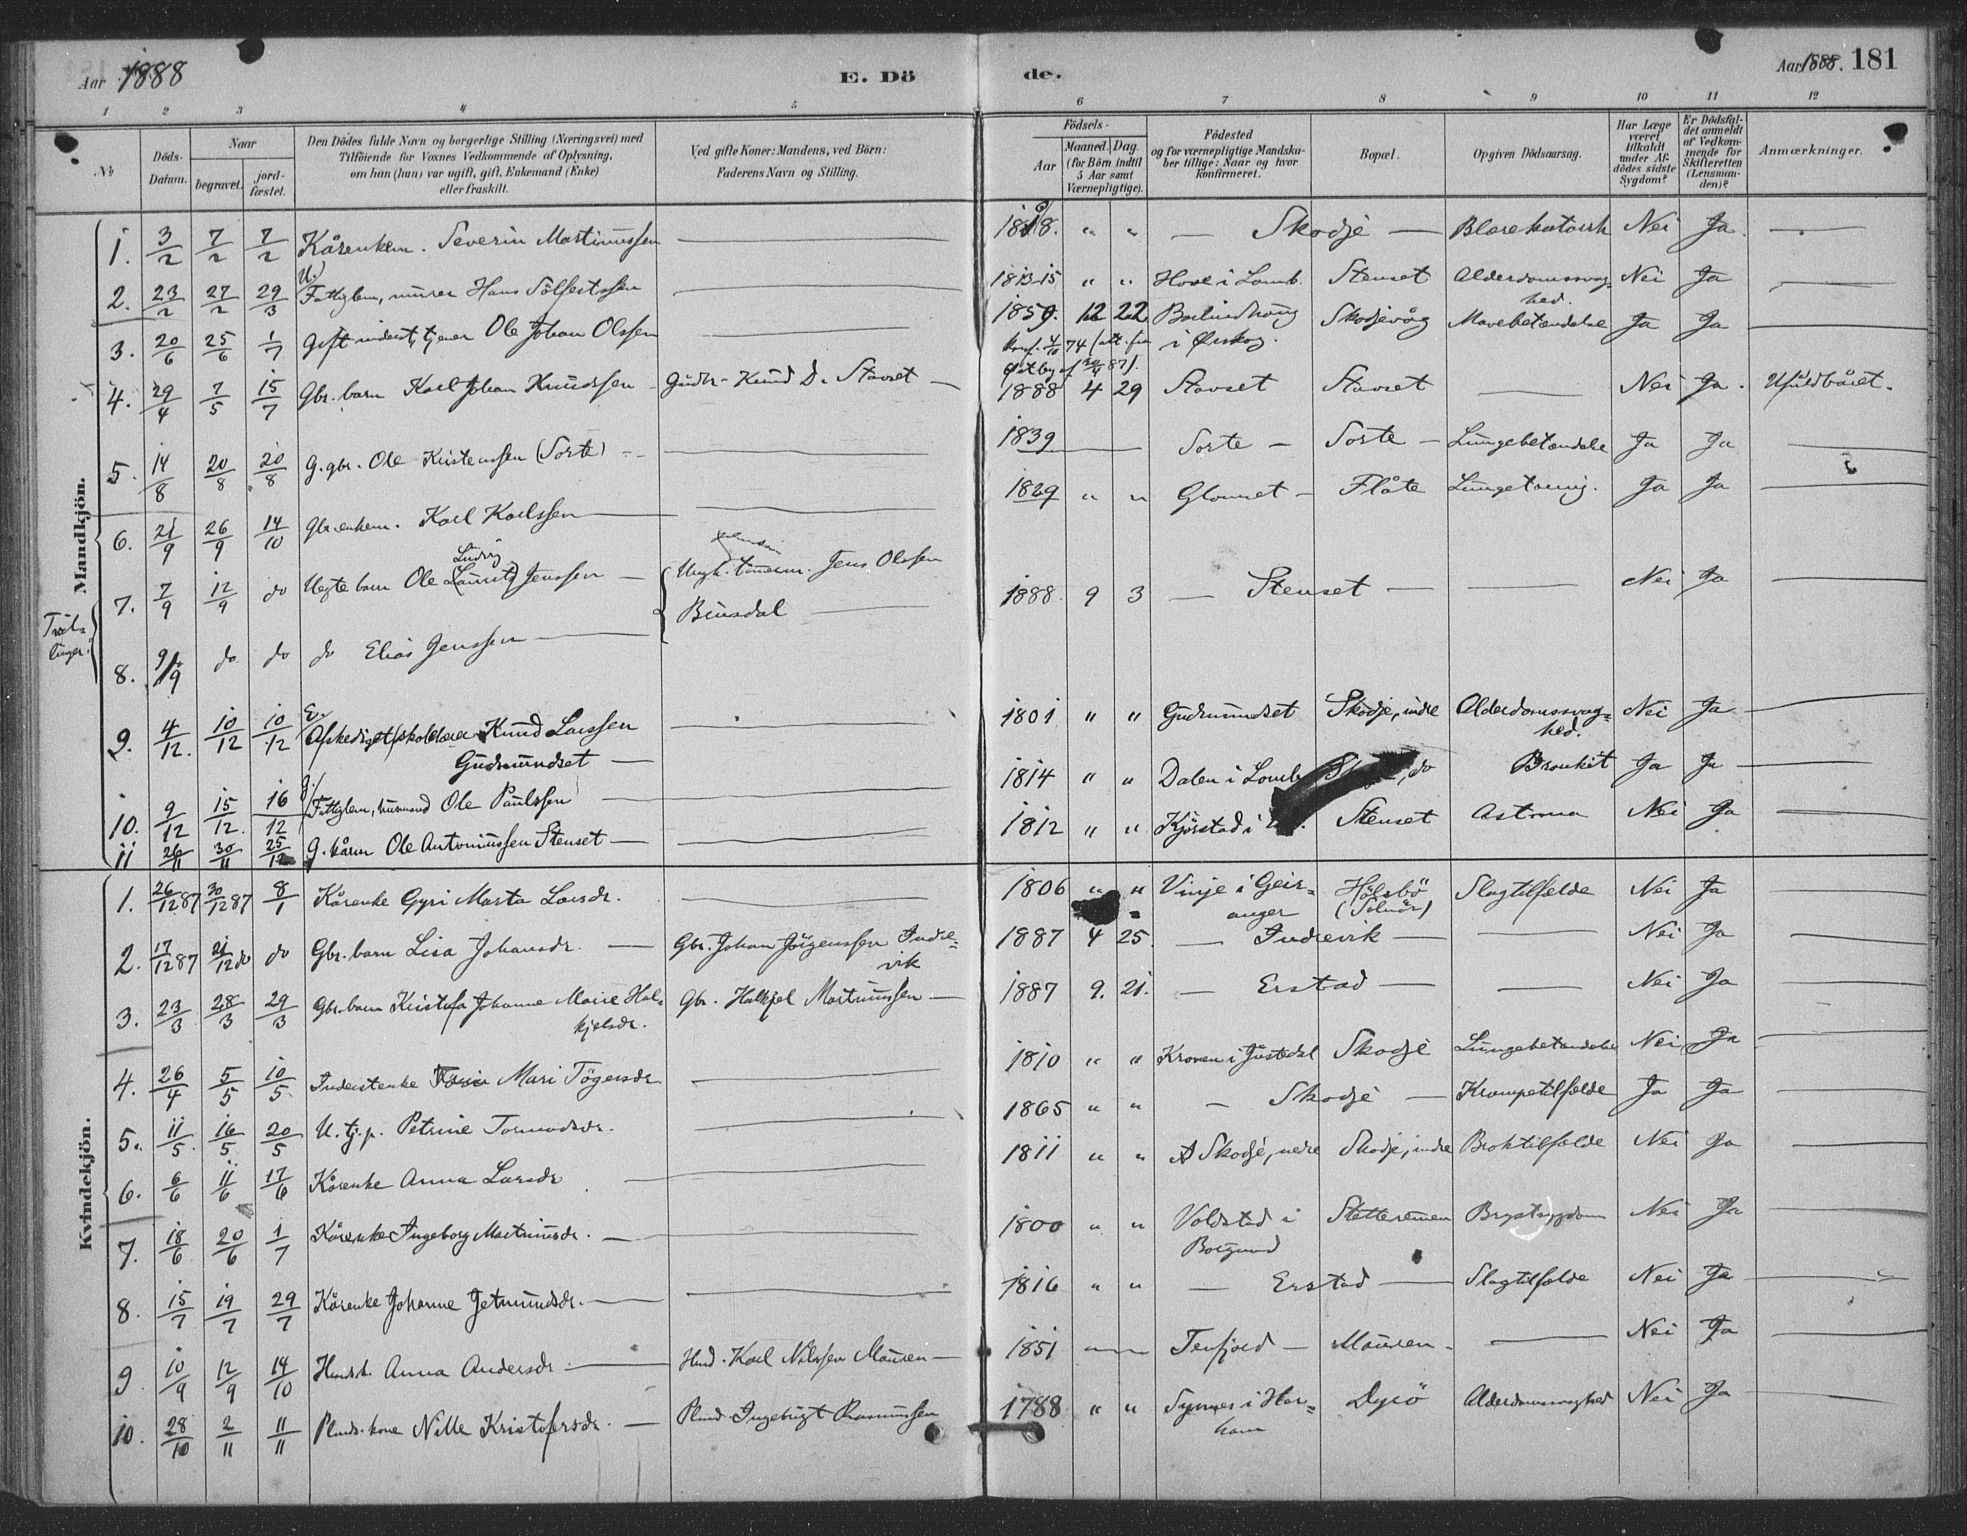 Aar 1888 E. Dö
de. Aar 1888. 181
1 2 3 4 5 6 7 8 9 10 11 12
№ Döds-Datum. Naar begravet. jord-fæstet. Den Dödes fulde Navn og borgerlige Stilling (Næringsvei) med Tilföiende for Voxnes Vedkommende af Oplysning, om han (hun) var ugift, gift, Enkemand (Enke) eller fraskilt. Ved gifte Koner: Mandens, ved Börn: Faderens Navn og Stilling.
Födsels- Aar Maaned. Dag (for Börn indtil 5 Aar samt Værnepligtige). Födested og for værnepligtige Mandskaber tillige: Naar og hvor konfirmeret. Bopæl. Opgiven Dödsaarsag. Har Læge været tilkaldt under Afdödes sidste Sygdom? Er Dödsfaldet anmeldt af Vedkommende for Skifteretten (Lensmanden)? Anmærkninger.
Mandkjön.
1. 3/2 7/2 7/2 Kårenkem. Severin Martinussen 1818. " " Skodje Blærekatarrh Nei Ja
2. 23/2 27/2 29/3 U. Fattiglem, murer Hans Sölfestssen 1813-15 " " Hove i Lomb. Stenset Alderdomssvaghed. Nei Ja
3. 20/6 25/6 1/7 Gift inderst, tjener Ole Johan Olssen 1859. 12 22 i Ørskog. Skodjevåg Mavebetændelse Ja Ja
4. 29/4 7/5 15/7 Gbr. barn Karl Johan Knudssen Gudbr. Knud D. Stavset 1888 4 29 Stavset Stavset Nei Ja. Ufuldbåret.
5. 14/8 20/8 20/8 G. gbr. Ole Kristenssen (Sorte) 1839 Sorte Sorte Lungebetændelse Ja Ja
6. 21/9 26/9 14/10 Gbr. enkem. Karl Karlssen 1829 " " Glomset Flåte Lungetæring. Ja Ja
Tvillinger.
7. 7/9 12/9 do Uegte barn Ole (Laurits) Ludvig Jenssen Ungk. tømmerm. Jens Olssen Binsdal 1888. 9 3 Stenset Nei Ja
8. 9/9 do do do Elias Jenssen
9. 4/12. 10/12 10/12 E. Afskediget skolelærer Knud Larssen Gudmundset 1801 " " Gudmundset Skodje, indre Alderdomssvaghed. Nei Ja
10. 9/12 15/12. 16/12 g. Fattiglem, husmand Ole Paulssen 1814 " " Dalen i Lomb. do Bronkit Ja Ja
11 26/11 30/11 25/12 G. kårm Ole Antoniussen Stenset 1812 " " Kjörstad i Stenset Astma Nei Ja
Kvindekjön.
1. 26/12 87 30/12 87 8/1 Kårenke Gyri Marta Larsdr. 1806 " " Vinje i Geiranger Hölsbö (Solnör) Slagtilfælde Nei Ja
2. 17/12 87 21/12 do do Gbr. barn Lisa Johansdr. Gbr. Johan Jörgenssen Indrevik 1887 4 25. Indrevik Nei Ja
3. 23/3 28/3 29/3 Gbr. barn Kristofa Johanne Marie Halkjelsdr. Gbr. Halkjel Martinussen 1887 9. 21. Erstad Nei Ja
4. 26/4 5/5 10/5 Inderstenke Mari Tögersdr 1810 " " Kronen i Justedal Skodje Lungebetændelse Nei Ja
5. 11/5 16/5 20/5 U. tj. p. Petrine Tormodsdr. 1865 " " Skodje Krampetilfælde Ja Ja
6. 6/6 11/6 17/6 Kårenke Anna Larsdr 1811 " " Skodje, nedre Skodje, indre Broktilfælde Nei Ja
7. 18/6 20/6 1/7 Kårenke Ingeborg Martinusdr. 1800 " " Voldstad i Borgund Stetteremen Brystsygdom Nei Ja
8. 15/7 19/7 29/7 Kårenke Johanne Jetmundsdr. 1816 " " Erstad Slagtilfælde Nei Ja
9 10/9 12/9 14/10 Anna Andersdr. Hmd. Karl Nilssen Mauren 1851 Tenfjord Mauren Nei Ja
10. 28/10 2/11 11/11 Plads. kone Nille Kristofersdr. Plmd. Ingebrigt Rasmussen 1788 " " Synnes i Harham Dyrö Alderdomssvaghed Nei Ja